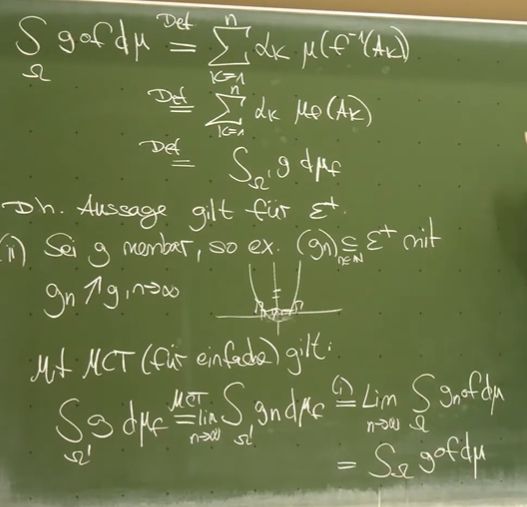 ∫_Ω g∘f dμ =^Def ∑_{k=1}^{n} α_k μ(f^{-1}(A_k))
=^Def ∑_{k=1}^{n} α_k μ_f(A_k)
=^Def ∫_{Ω'} g dμ_f
Dh. Aussage gilt für ℰ^+.
(ii) Sei g messbar, so ex. (g_n)_{n∈ℕ} ⊆ ℰ^+ mit
g_n ↑ g, n→∞
Mit MCT (für einfache) gilt:
∫_{Ω'} g dμ_f =^MCT lim_{n→∞} ∫_{Ω'} g_n dμ_f =^(i) Lim_{n→∞} ∫_Ω g_n∘f dμ
= ∫_Ω g∘f dμ